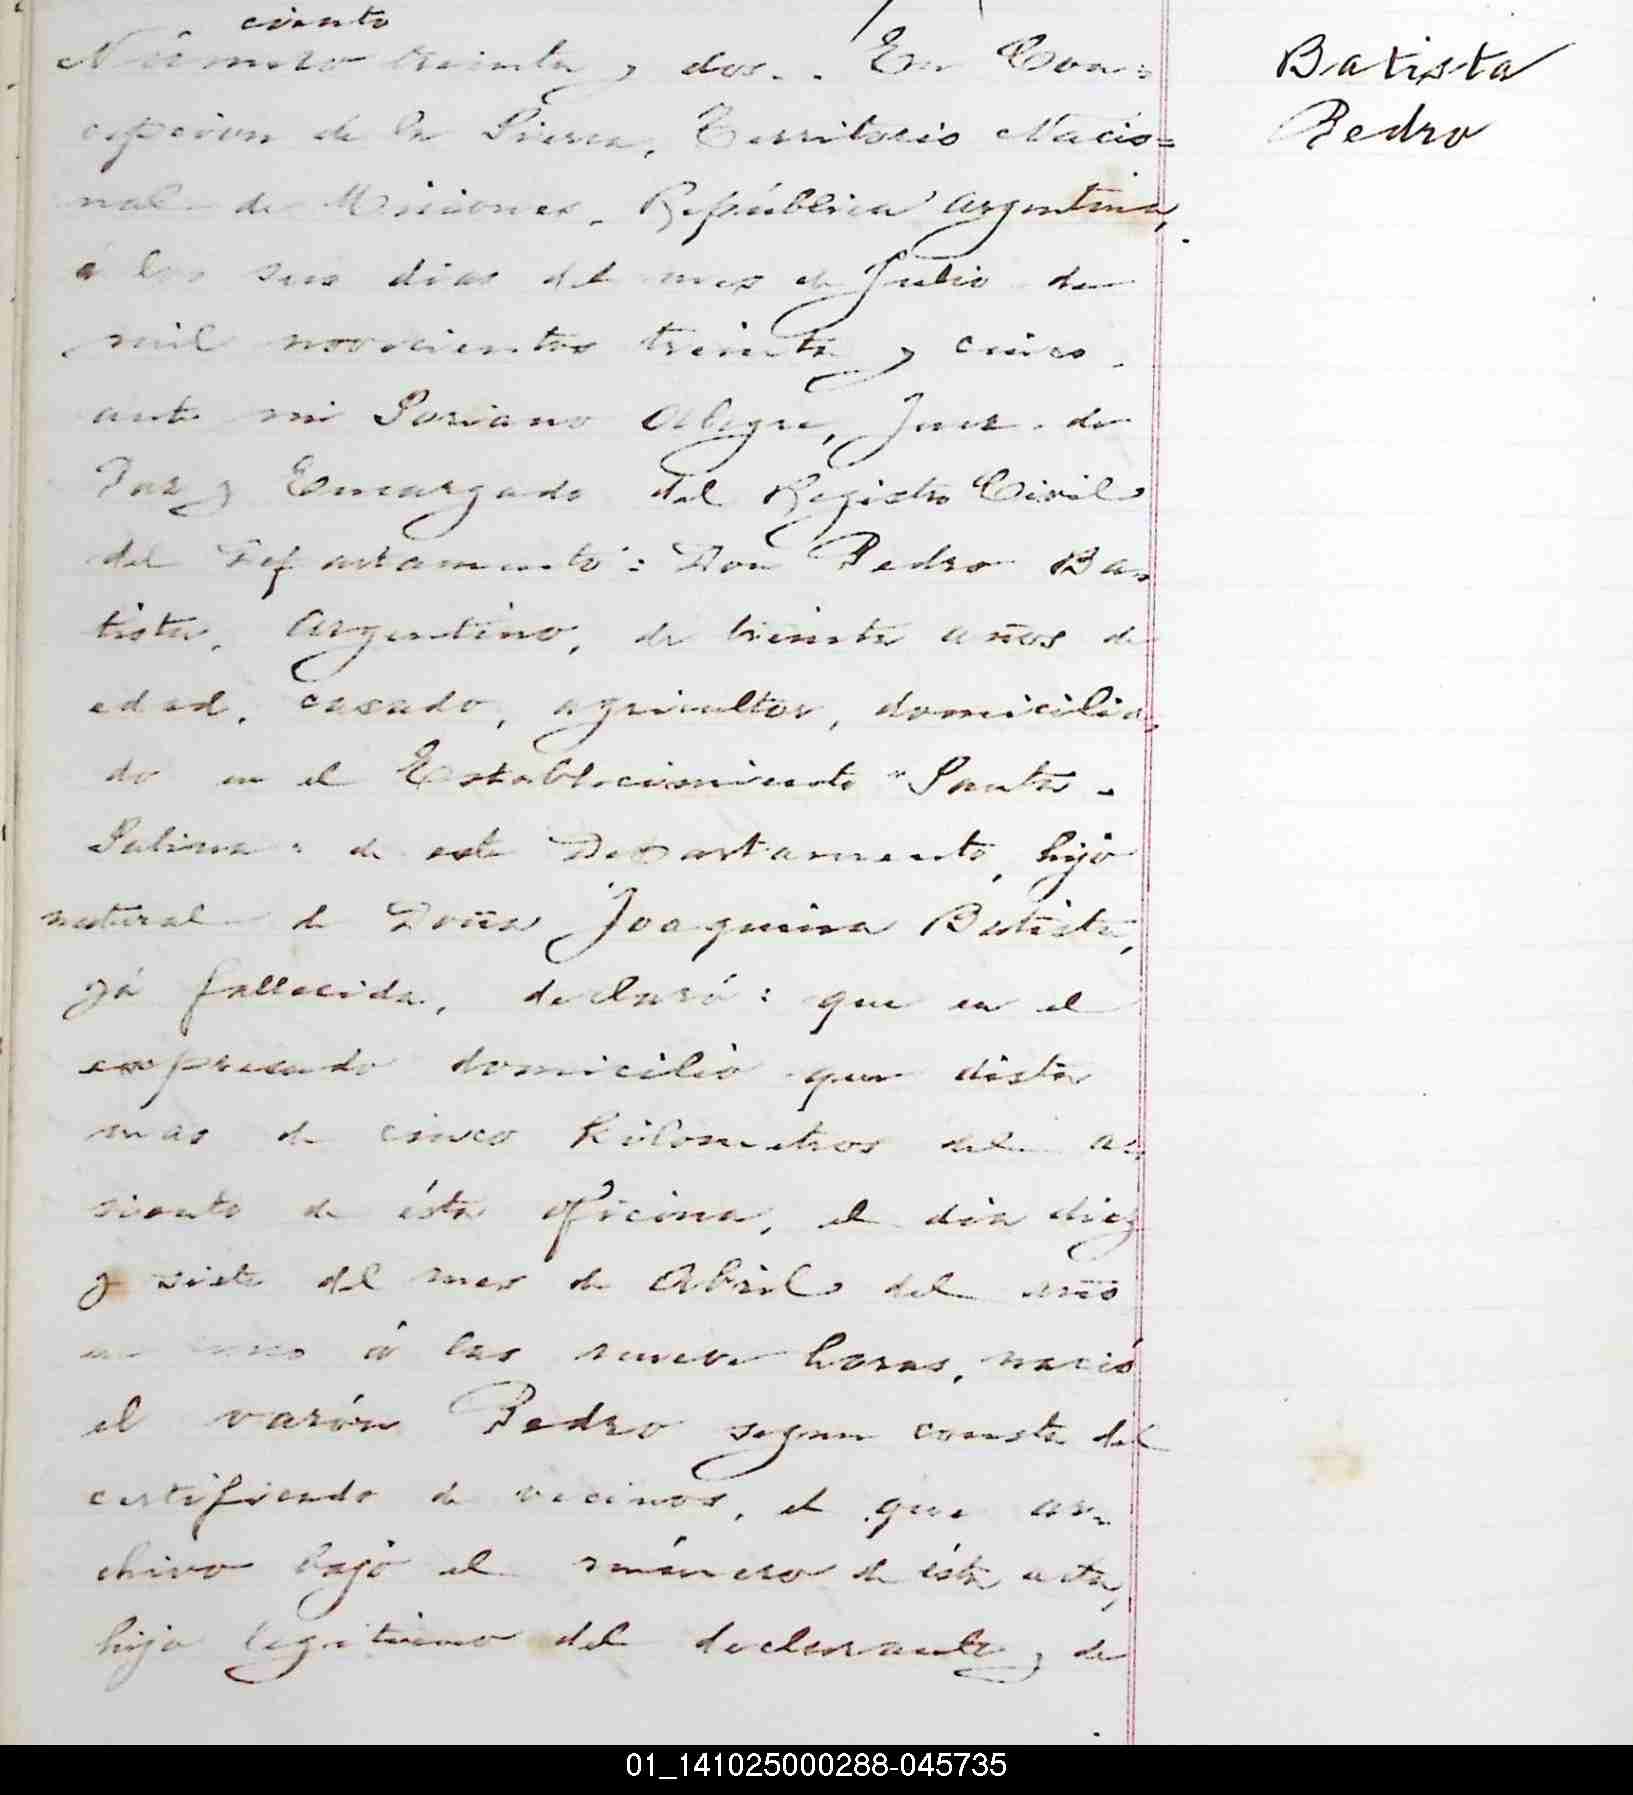 ciento
Número treinta y dos.. En Con=
cepcion de la Sierra, Territorio Nacio=
nal de Misiones, República Argentina,
á los seis dias del mes de Julio de
mil novecientos treinta y cinco,
ante mi Soriano Alegre, Juez de
Paz y Encargado del Registro Civil
del Departamento: Don Pedro Ba=
tista, Argentino, de treinta años de
edad, casado, agricultor, domicilia=
do en el Establecimiento "Santa
de este Departamento, hijo
natural de Doña Joaquina Batista,
yá fallecida, declaró: que en el
expresado domicilio que dista
mas de cinco Kilometros del a=
siento de ésta oficina, el dia diez
y siete del mes de Abril del año
en curso á las nueve horas, nació
el varón Pedro segun consta del
certificado de vecinos, el que ar=
chivo bajo el número de ésta acta,
hijo legitimo del declarante y de
Batista
Pedro
01_141025000288-045735